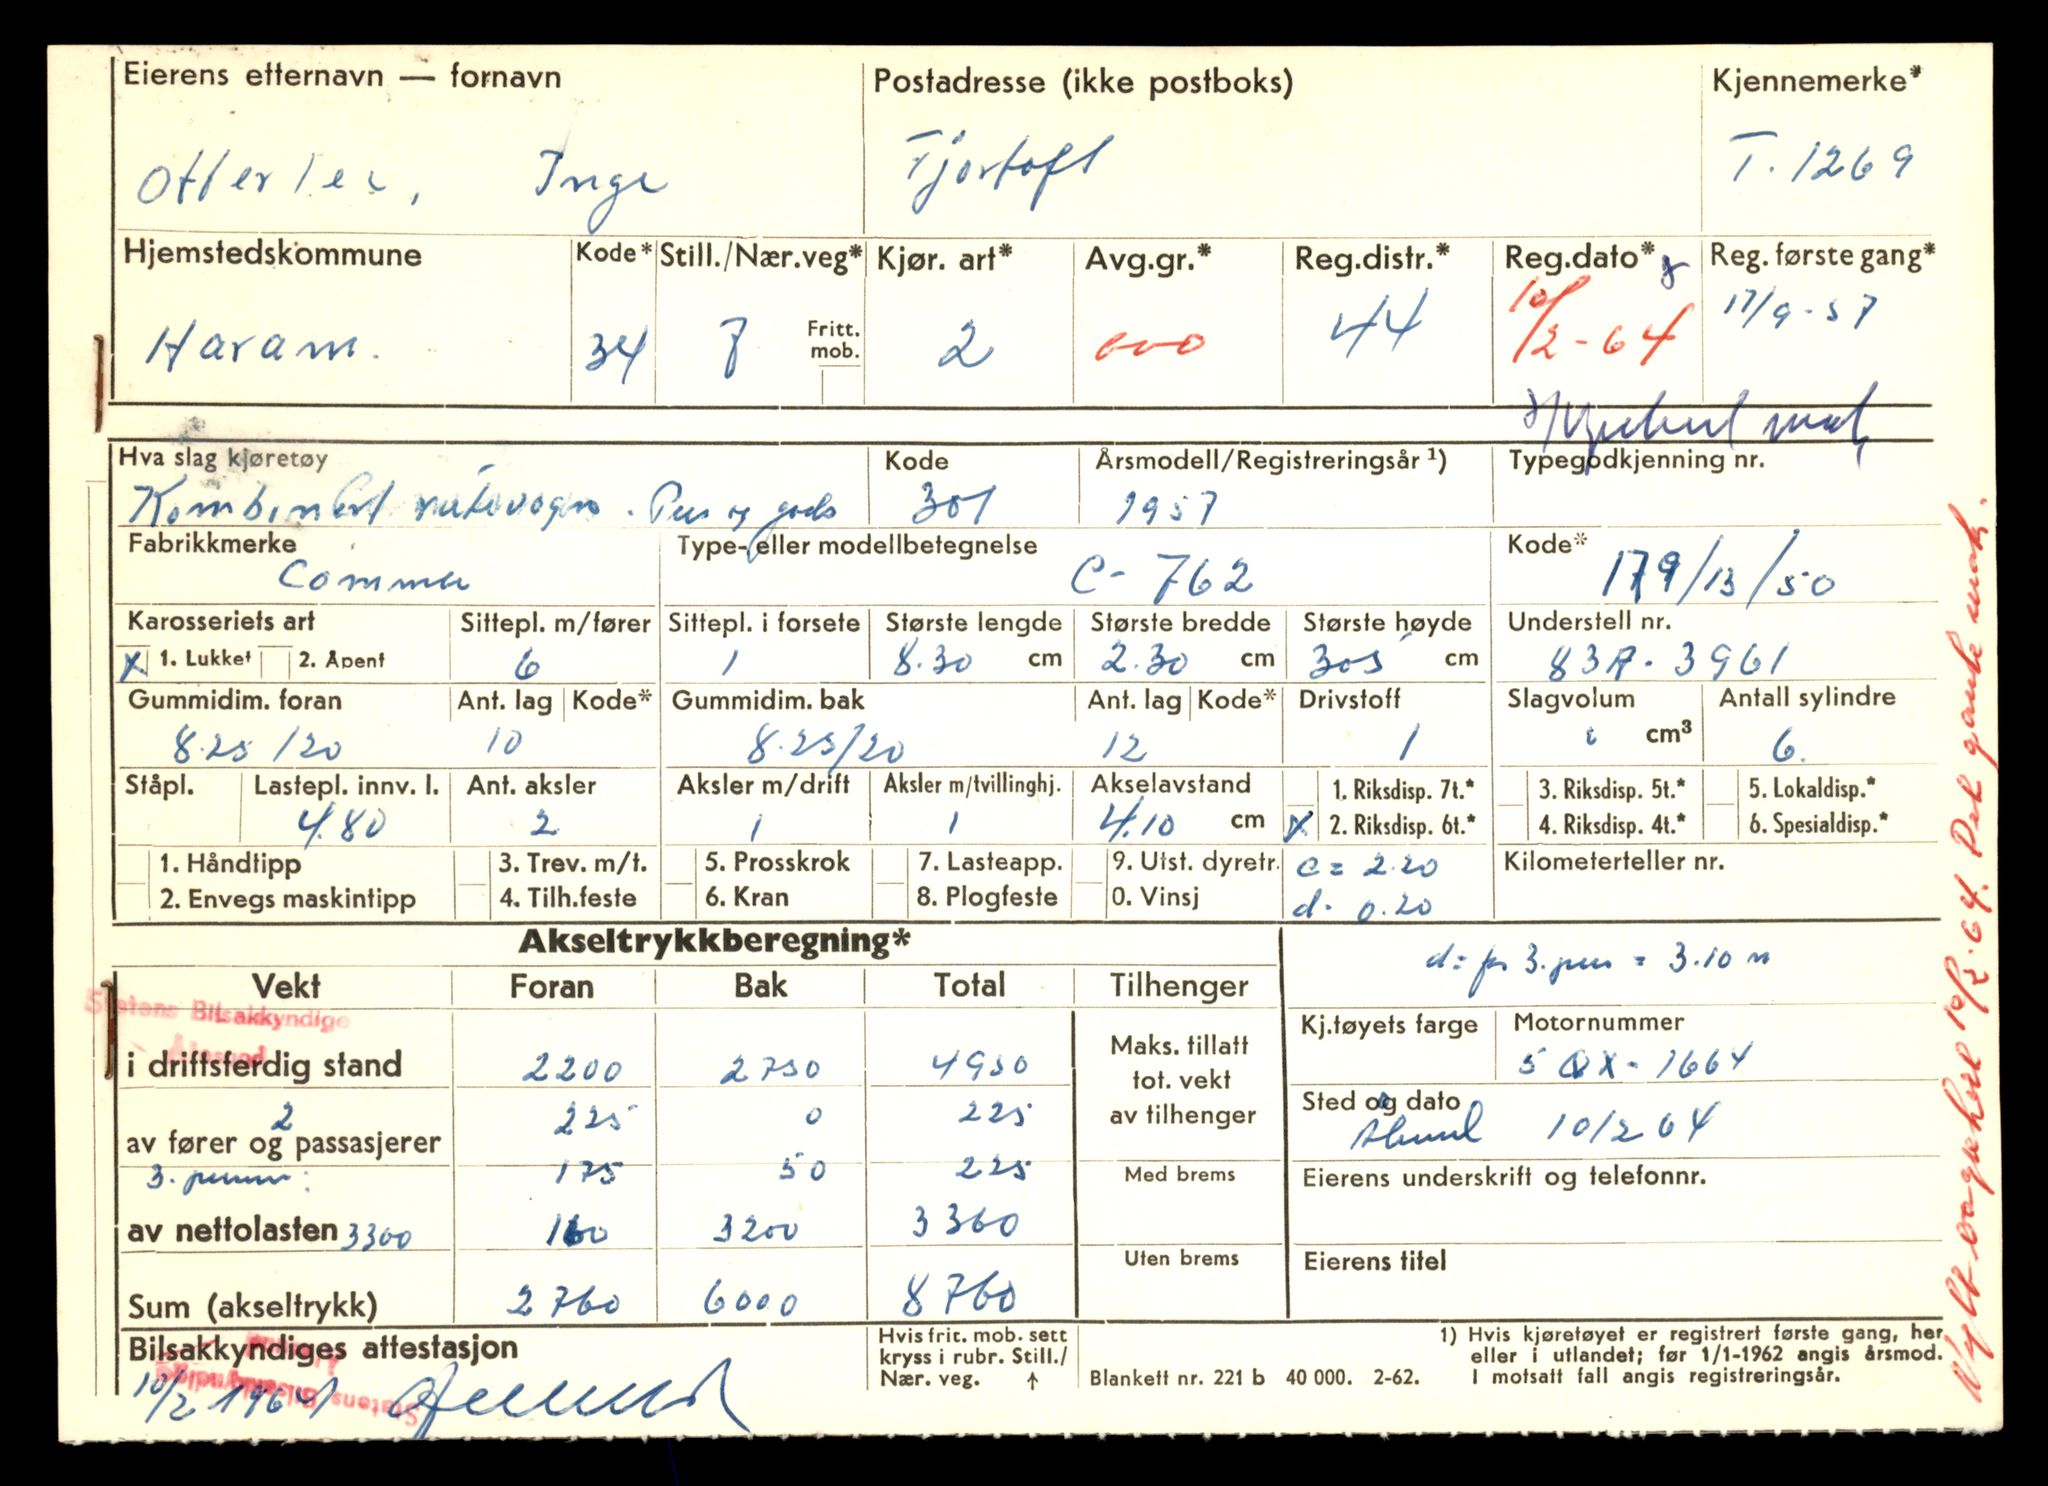 Eierens etternavn — fornavn Postadresse (ikke postboks) Kjennemerke*
Otterlei, Inge Fjørtoft T. 1269
Hjemstedskommune Kode* Still./Nær.veg* Kjør. art* Avg.gr.* Reg.distr.* Reg.dato* Reg. første gang*
Haram. 34 7 Fritt. mob. 2 000 44 10/2-64 17/9-57
Hva slag kjøretøy Kode Årsmodell/Registreringsår ¹) Typegodkjenning nr.
Kombinert rutevogn. Pers og gods 301 1957
Fabrikkmerke Type- eller modellbetegnelse Kode*
Commer C-762 179/13/50
Karosseriets art Sittepl. m/fører Sittepl. i forsete Største lengde Største bredde Største høyde Understell nr.
x 1. Lukket 2. Åpent 6 1 8.30 cm 2.30 cm 305 cm 83A-3961
Gummidim. foran Ant. lag Kode* Gummidim. bak Ant. lag Kode* Drivstoff Slagvolum Antall sylindre
8.25/20 10 8.25/20 12 1 cm³ 6.
Ståpl. Lastepl. innv. l. Ant. aksler Aksler m/drift Aksler m/tvillinghj. Akselavstand 1. Riksdisp. 7t.* 3. Riksdisp. 5t.* 5. Lokaldisp.*
4.80 2 1 1 4.10 cm x 2. Riksdisp. 6t.* 4. Riksdisp. 4t.* 6. Spesialdisp.*
1. Håndtipp 3. Trev. m/t. 5. Prosskrok 7. Lasteapp. 9. Utst. dyretr. c = 2.20 Kilometerteller nr.
2. Envegs maskintipp 4. Tilh.feste 6. Kran 8. Plogfeste 0. Vinsj d. 0.20
Akseltrykkberegning* d = for 3. pers = 3.10 m
Vekt Foran Bak Total Tilhenger
Statens Bilsakkyndige
Ålesund
Kj.tøyets farge Motornummer
i driftsferdig stand 2200 2750 4950 Maks. tillatt tot. vekt av tilhenger 5 QX-1664
2 225 0 225 Sted og dato
av fører og passasjerer Ålesund 10/2 64
3. personer: 175 50 225 Med brems Eierens underskrift og telefonnr.
av nettolasten 3300 160 3200 3360
Uten brems Eierens titel
Sum (akseltrykk) 2760 6000 8760
Bilsakkyndiges attestasjon Hvis frit. mob. sett kryss i rubr. Still./ Nær. veg. ↑ Blankett nr. 221 b 40 000. 2-62.
1) Hvis kjøretøyet er registrert første gang, her eller i utlandet; før 1/1-1962 angis årsmod. I motsatt fall angis registreringsår.
10/2 1964
Statens Bilsakkyndige
Ålesund
Nytt vognkort 10/2-64. Det gamle mak.